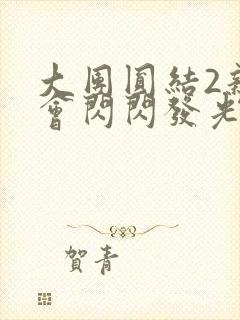 大團圓結2新
會閃閃發光
賀青